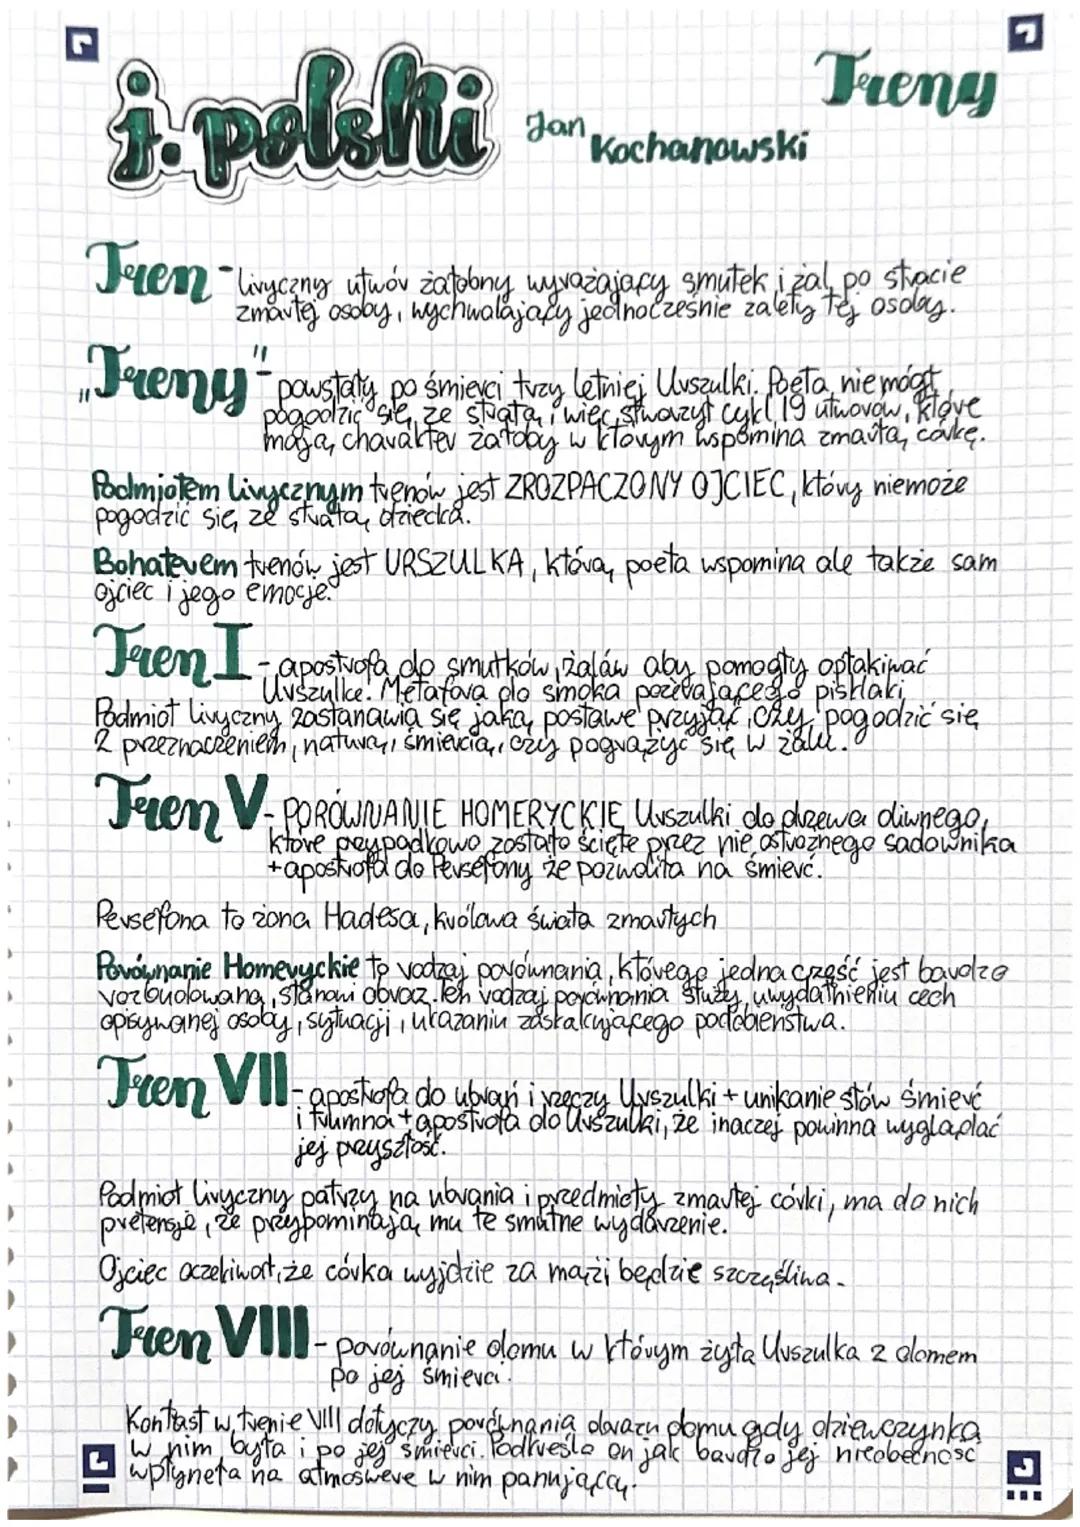 j. polski
Jan Kochanowski
Treny
Tren - liryczny utwór żałobny wyrażający smutek i żal po stracie
zmarłej osoby, wychwalający jednocześnie zalety tej osoby.
„Treny" - powstały po śmierci trzy letniej Urszulki. Poeta nie mógł
pogodzić się ze stratą i więc stworzył cykl 19 utworów, które
mają charakter żałoby w którym wspomina zmarłą córkę.
Podmiotem lirycznym trenów jest ZROZPACZONY OJCIEC, który niemoże
pogodzić się ze stratą dziecka.
Bohaterem trenów jest URSZULKA, którą poeta wspomina ale także sam
ojciec i jego emocje.
Tren I - apostrofa do smutków, żalów aby pomogły opłakiwać
Urszulkę. Metafora do smoka pożerającego pisklaki
Podmiot liryczny zastanawia się jaką postawę przyjąć, czy pogodzić się
z przeznaczeniem, naturą, śmiercią, czy pogrążyć się w żalu.
Tren V - PORÓWNANIE HOMERYCKIE Urszulki do drzewa oliwnego,
które przypadkowo zostało ścięte przez nie ostrożnego sadownika
+ apostrofa do Persefony że pozwoliła na śmierć.
Persefona to żona Hadesa, królowa świata zmarłych
Porównanie Homeryckie to rodzaj porównania, którego jedna część jest bardzo
rozbudowana, stanowi obraz. Ten rodzaj porównania służy uwydatnieniu cech
opisywanej osoby, sytuacji, ukazaniu zaskakującego podobieństwa.
Tren VII - apostrofa do ubrań i rzeczy Urszulki + unikanie słów śmierć
i trumna + apostrofa do Urszulki, że inaczej powinna wyglądać
jej przyszłość.
Podmiot liryczny patrzy na ubrania i przedmioty zmarłej córki, ma do nich
pretensje, że przypominają mu te smutne wydarzenie.
Ojciec oczekiwał, że córka wyjdzie za mąż i będzie szczęśliwa.
Tren VIII - porównanie domu w którym żyła Urszulka z domem
po jej śmierci.
Kontrast w trenie VIII dotyczy porównania obrazu domu gdy dziewczynka
w nim była i po jej śmierci. Podkreśla on jak bardzo jej nieobecność
wpłyneła na atmosferę w nim panującą.